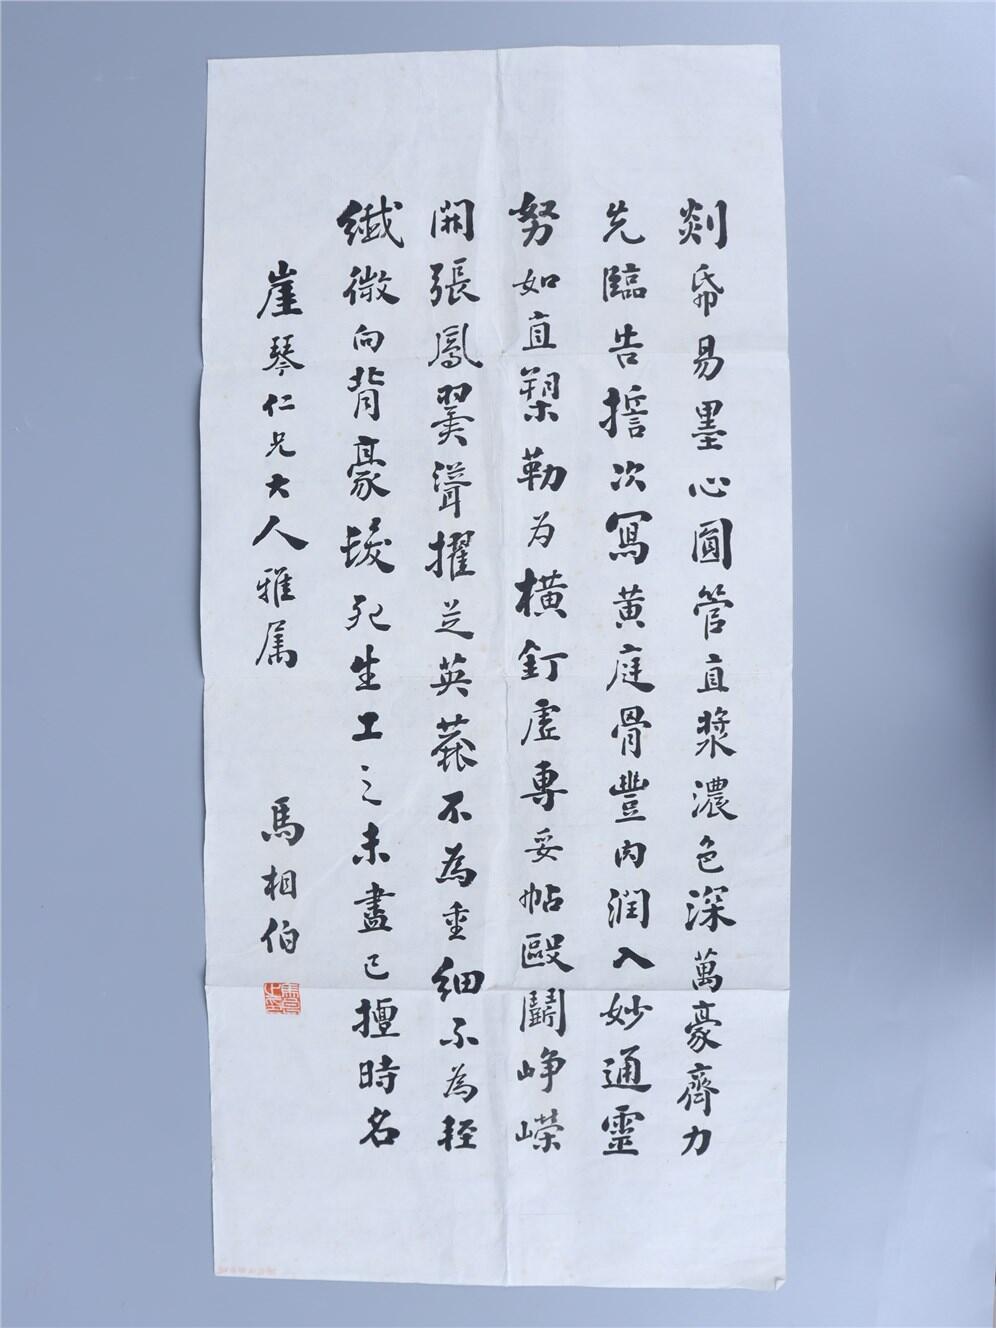 剡帋易墨心圓管直漿濃色深萬豪齊力
先臨告誓次寫黄庭骨豐肉潤入妙通靈
努如直槊勒為橫釘虚專妥帖毆鬬峥嶸
開張鳳翼聳擢芝英不為重細不為輕
纖微向背豪髮死生工之未盡已擅時名
崖琴仁兄大人雅属
馬相伯